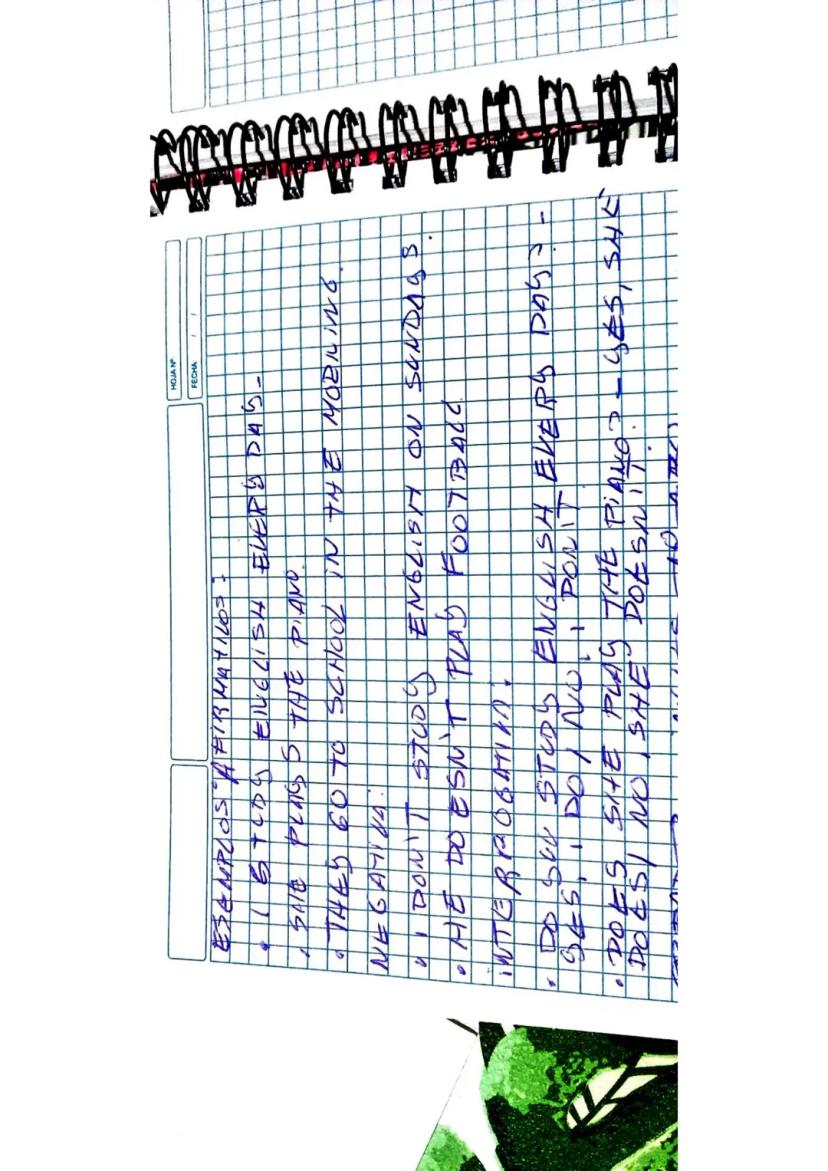 HOJA Nº
FECHA / /
ESEMPLOS AFIRMATIVOS:
• I STUDY ENGLISH EVERY DAY-
• SHE PLAYS THE PIANO
• THEY GO TO SCHOOL IN THE MORNING.
NEGATIVA:
• I DON'T STUDY ENGLISH ON SUNDAYS.
• HE DOESN'T PLAY FOOTBALL
INTERROGATIVA:
• DO YOU STUDY ENGLISH EVERY DAY? -
YES, I DO / NO, I DON'T
• DOES SHE PLAY THE PIANO? - YES, SHE
DOES / NO, SHE DOESN'T.